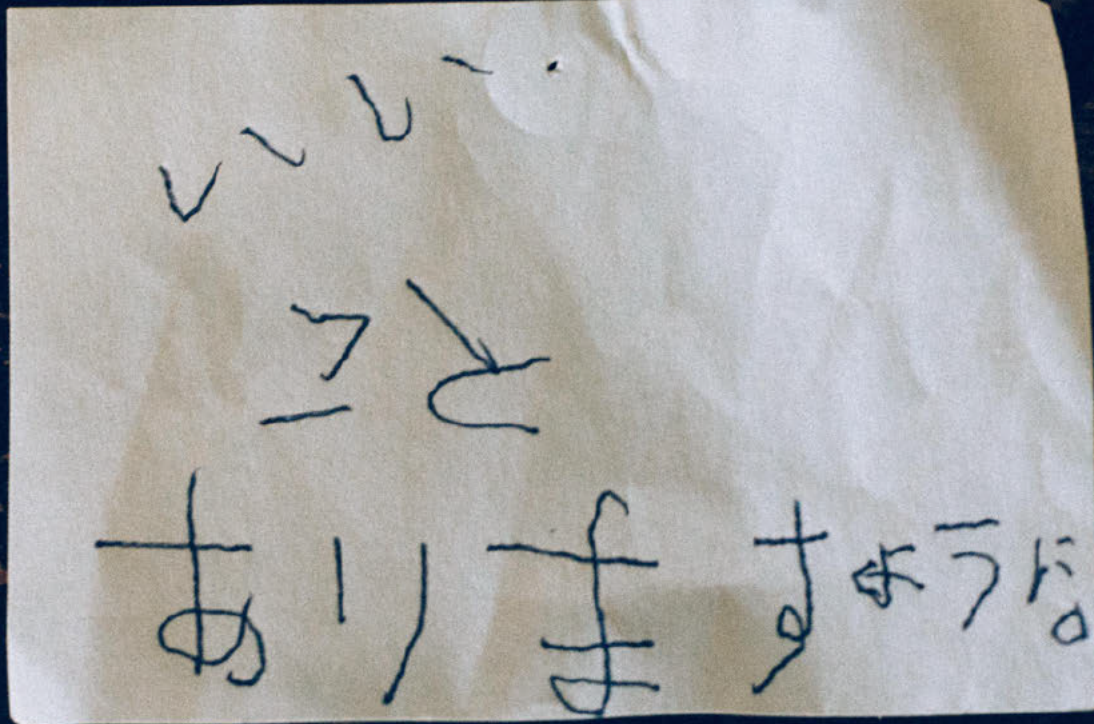 いい
こと
ありますように。